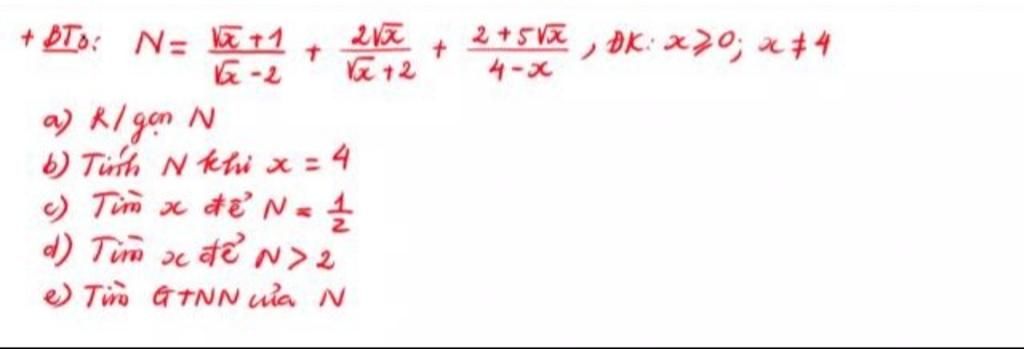 + BT3: N = (√x + 1)/(√x - 2) + 2√x/(√x + 2) + (2 + 5√x)/(4 - x), ĐK: x ⩾ 0; x ≠ 4
a) R/gọn N
b) Tính N khi x = 4
c) Tìm x để N = 1/2
d) Tìm x để N > 2
e) Tìm GTNN của N